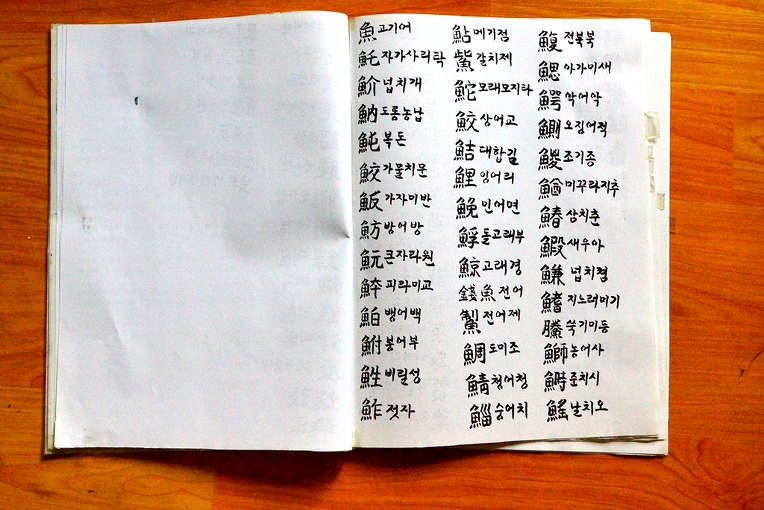 魚 고기어
魠 자가사리탁
魪 넙치개
魶 도롱뇽납
魨 복돈
가물치문
魬 가자미반
魴 방어방
魭 큰자라원
피라미교
鮊 뱅어백
鮒 붕어부
鮏 비릴성
鮓 젓자
鮎 메기점
鮆 갈치제
鮀 모래모지타
鮫 상어교
鮚 대합길
鯉 잉어리
鮸 민어면
鯆 돌고래부
鯨 고래경
錢魚 전어
전어제
鯛 도미조
鯖 청어청
鯔 숭어치
鰒 전복복
鰓 아가미새
鰐 악어악
鰂 오징어적
鯼 조기종
鰌 미꾸라지추
鰆 삼치춘
鰕 새우하
鰜 넙치겸
鰭 지느러미기
쑥기미등
鰤 농어사
鰣 준치시
鰩 날치요